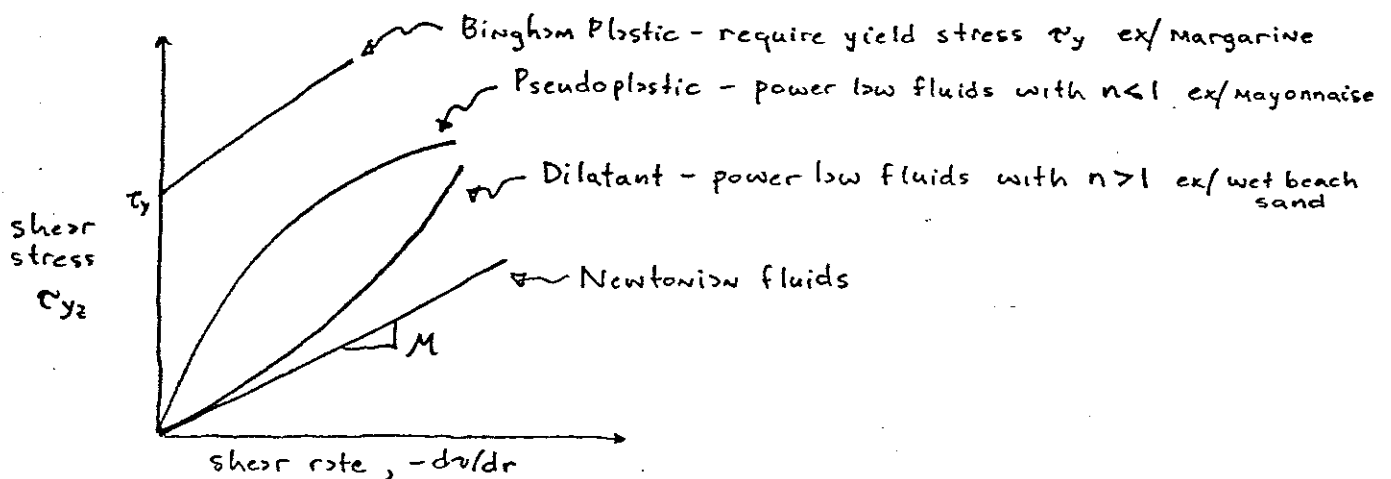 Bingham Plastic - require yield stress τy ex/ Margarine
Pseudoplastic - power law fluids with n<1 ex/ Mayonnaise
Dilatant - power law fluids with n>1 ex/ wet beach
sand
τy
shear
stress
τyz
Newtonian fluids
μ
shear rate, -dv/dr